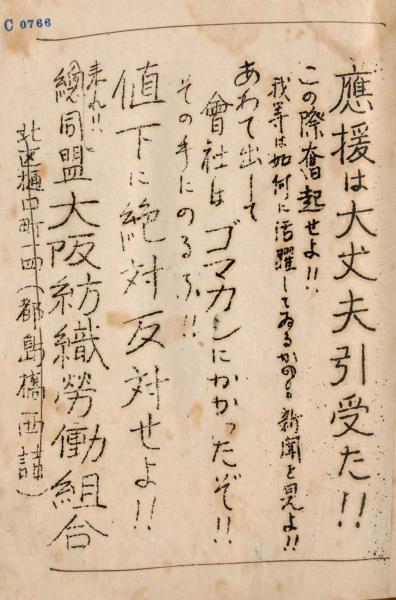 C 0766
應援は大丈夫引受た!!
この際奮起せよ!!
我等は如何に活躍してゐるかの 新聞を見よ!!
あわて出して
會社はゴマカシにかかったぞ!!
その手にのるふ!!
値下に絶対反対せよ!!
来れ!!
總同盟大阪紡織勞働組合
北区樋口町一四(都島橋西詰)